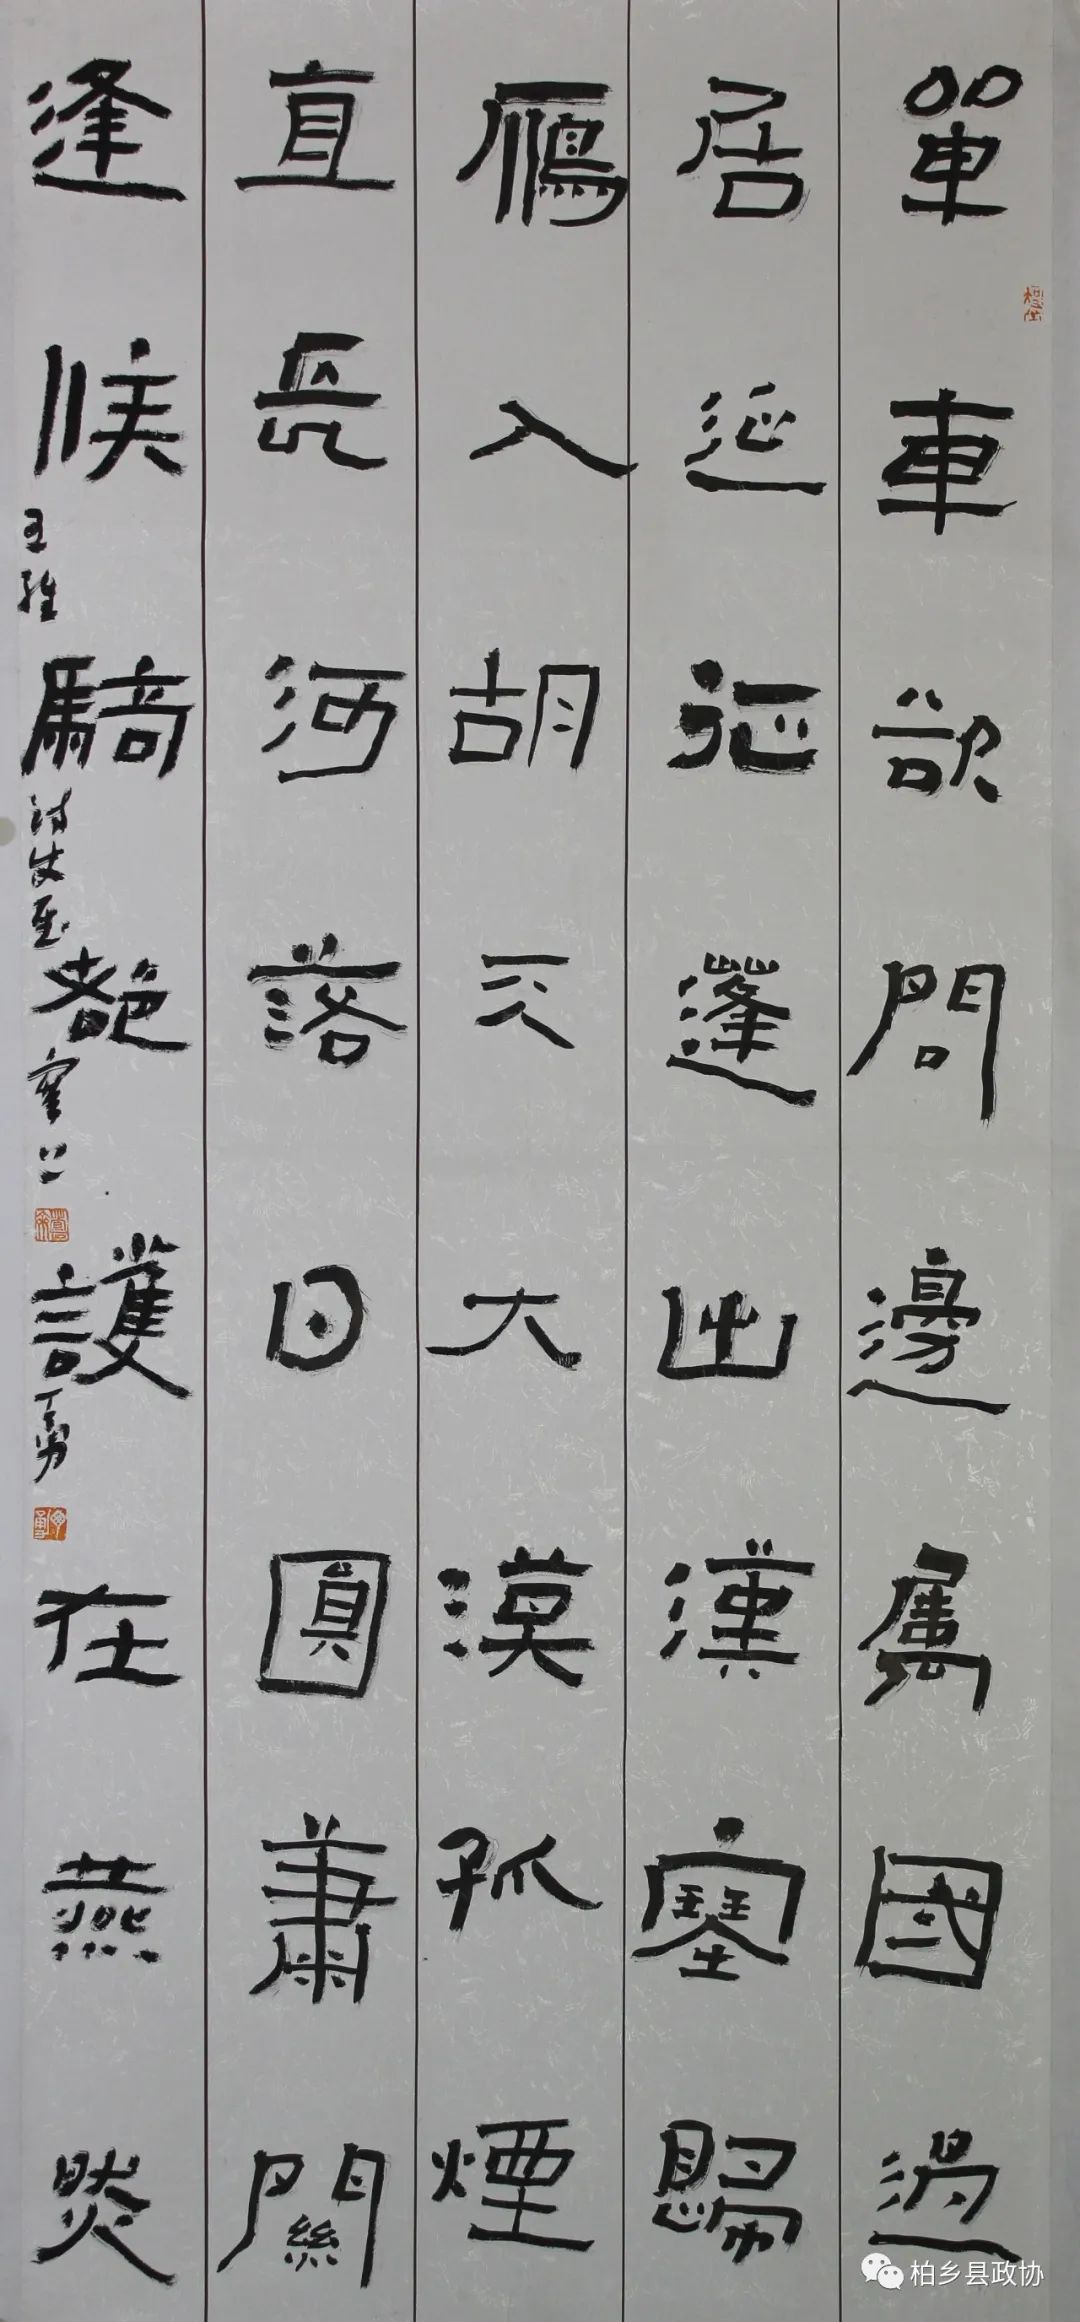 單車欲問邊屬國過
居延征蓬出漢塞歸
鴈入胡天大漠孤煙
直長河落日圓蕭關
逢候騎都護在燕然
王維詩使至塞上丁勇
柏乡县政协